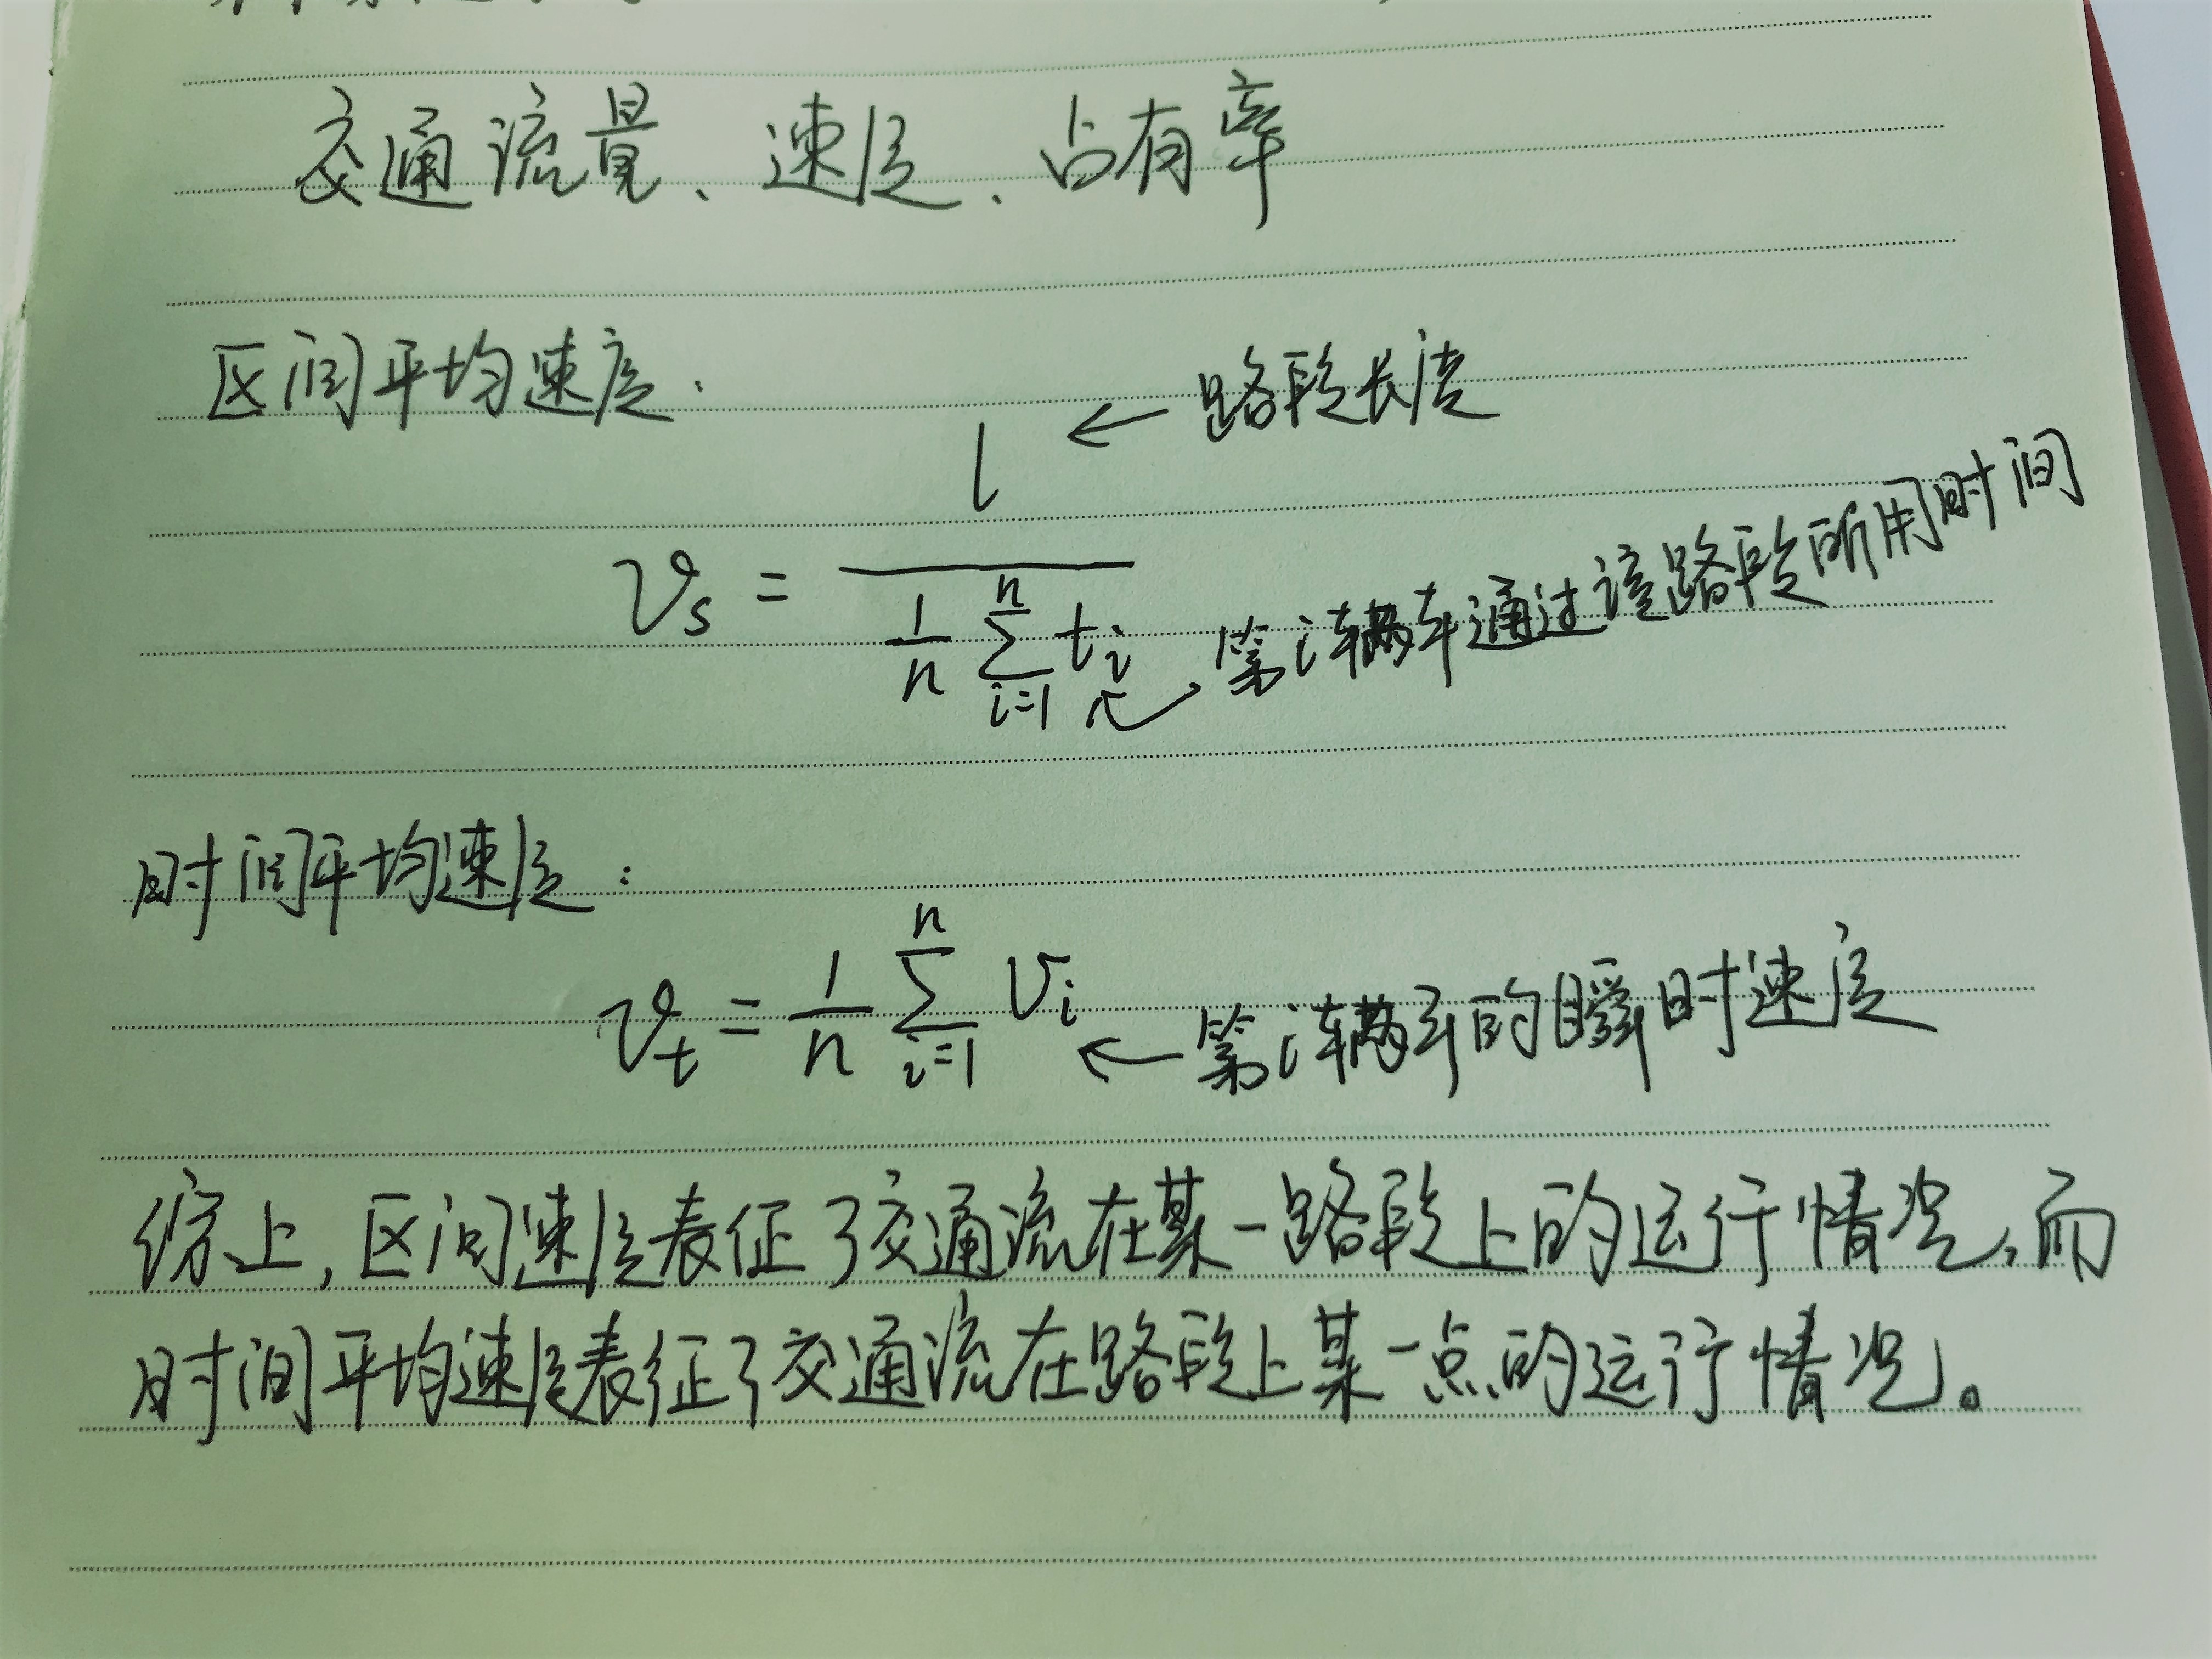 交通流量、速度、占有率
区间平均速度:
l ← 路段长度
v_s = l / (1/n ∑_{i=1}^{n} t_i) 第i辆车通过该路段所用时间
时间平均速度:
v_t = 1/n ∑_{i=1}^{n} v_i ← 第i辆车的瞬时速度
综上,区间速度表征了交通流在某一路段上的运行情况,而
时间平均速度表征了交通流在路段上某一点的运行情况。